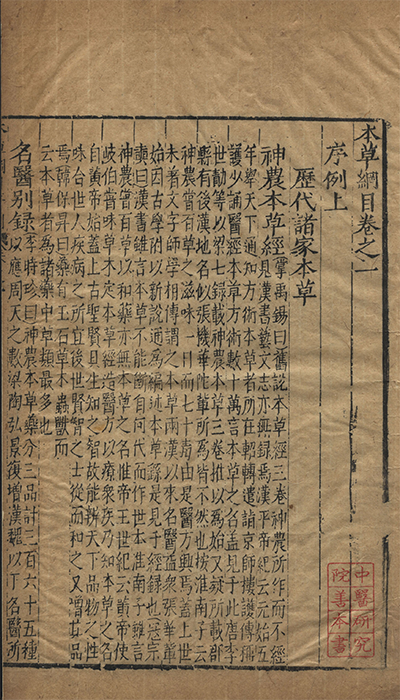 本草綱目卷之一
序例上
歷代諸家本草
神農本草經掌禹錫曰舊說本草經三卷神農所作而不經
見漢書藝文志亦無錄焉漢平帝紀云元始五
年舉天下通知方術本草者所在軺轉遣詣京師樓護傳稱
護少誦醫經本草方術數十萬言本草之名盖見于此唐李
世勣等以梁七錄載神農本草三卷推以為始又疑所載郡
縣有後漢地名似張機華佗輩所為皆不然也按淮南子云
神農嘗百草之滋味一日而七十毒由是醫方興焉蓋上世
未著文字師學相傳謂之本草兩漢以來名醫益衆張華輩
始因古學附以新說通為編述本草繇是見于經錄也寇宗
奭曰漢書雖言本草不能斷自何代而作世本淮南子雖言
神農嘗百草以和藥亦無本草之名惟帝王世紀云黃帝使
岐伯嘗味草木定本草經造醫方以療衆疾乃知本草之名
自黃帝始蓋上古聖賢具生知之智故能辨天下品物之性
味合世人疾病之所宜後世賢智之士從而和之又增其品
焉韓保昇曰藥有玉石草木蟲獸而
云本草者為諸藥中草類最多也
名醫別錄李時珍曰神農本草藥分三品計三百六十五種
以應周天之數梁陶弘景復增漢魏以下名醫所
中醫研究
院善本書